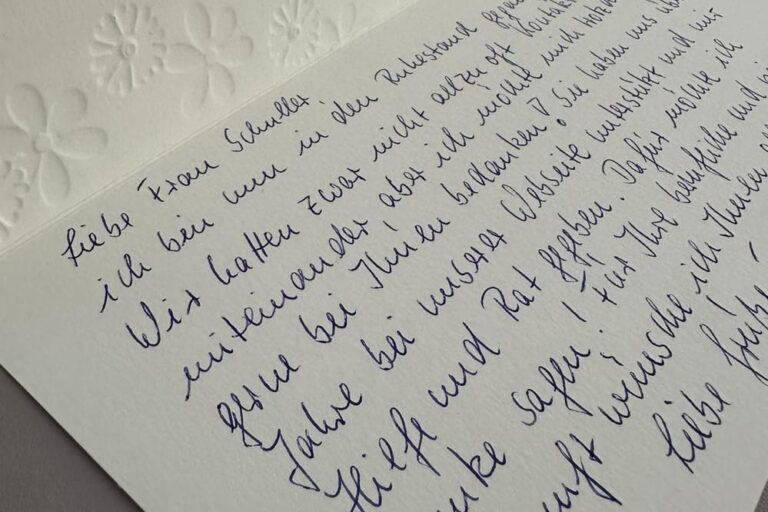 Liebe Frau Schuller
ich bin nun in den Ruhestand
Wir hatten zwar nicht allzu oft Kontakt
miteinander aber ich möchte mich trotzdem
gerne bei Ihnen bedanken! Sie haben uns
Jahre bei unserer Webseite unterstützt und mit
Hilfe und Rat gegeben. Dafür möchte ich
sagen! Für Ihre berufliche und
wünsche ich Ihnen
Liebe Grüße